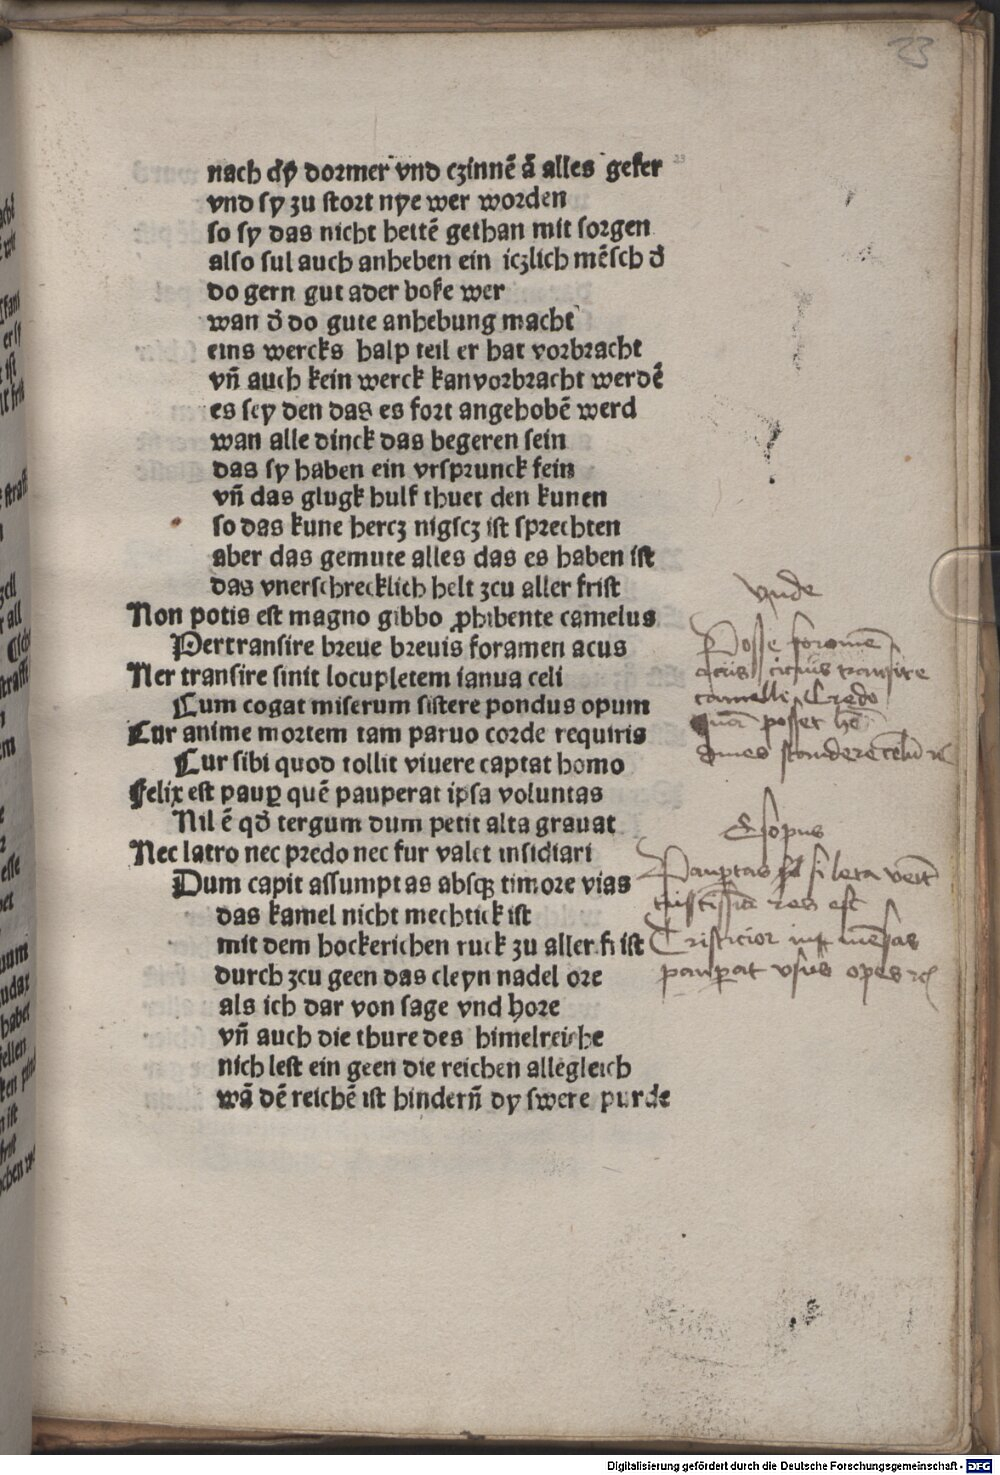 23
nach dy̕ dormer vnd czinnē ā alles gefer
vnd sy zu stort nye wer worden
so sy das nicht hettē gethan mit sorgen
also sul auch anheben ein iczlich mēsch d̕
do gern gut ader boſe wer
wan d̕ do gute anhebung macht
eins wercks halp teil er hat vorbracht
vn̄ auch kein werck kanvorbracht werdē
es sey den das es fort angehobē werd
wan alle dinck das begeren sein
das sy haben ein vrsprunck fein
vn̄ das glugk hulf thuet den kunen
so das kune hercz nigscz ist sprechten
aber das gemute alles das es haben ist
das vnerschrecklich helt zcu aller frist
Non potis est magno gibbo ꝓhibente camelus
Pertransire breue breuis foramen acus
Ner transire sinit locupletem ianua celi
Cum cogat miserum sistere pondus opum
Cur anime mortem tam paruo corde requiris
Cur sibi quod tollit viuere captat homo
Felix est paup̱ quē pauperat ipsa voluntas
Nil ē qd̕ tergum dum petit alta grauat
Nec latro nec predo nec fur valet insidiari
Dum capit assumptas absqꝫ timore vias
das kamel nicht mechtick ist
mit dem hockerichen ruck zu aller frist
durch zcu geen das cleyn nadel ore
als ich dar von sage vnd hore
vn̄ auch die thure des himelreiche
nich lest ein geen die reichen allegleich
wā dē reichē ist hindern̄ dy swere purde
vnde
Posse foramē
acus citius transire
camelli Credo
quā posset
Esopus
Paup̱tas si leta venit
tristissima res est
Tristicior int̕ mēsas
paup̱at vsus opes
Digitalisierung gefördert durch die Deutsche Forschungsgemeinschaft - DFG